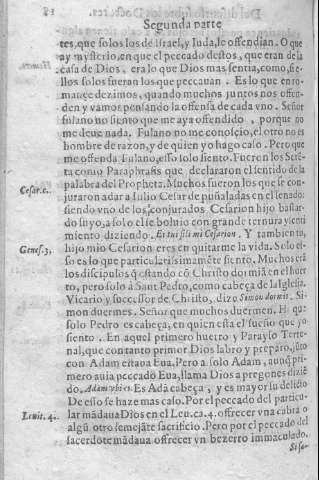 Segunda parte
tes, que solos los de Israel, y Iuda, le offendian. O que
ay mysterio, en que el peccado destos, que eran de la
casa de Dios, era lo que Dios mas sentia, como, si e-
llos solos fueran los que peccauan. Es lo que enro-
mançe dezimos, quando muchos juntos nos offen-
den y vamos pensando la offensa de cada vno. Señor
fulano no siento que me aya offendido, porque no
me deue nada. Fulano no me conoscio, el otro no es
hombre de razon, y de quien yo hago caso. Pero que
me offenda Fulano, esso solo siento. Fueron los
ta como Paraphrasis que declararon el sentido de la
palabra del Propheta. Muchos fueron los que se con-
juraron a dar a Iulio Cesar de puñaladas en el senado:
Cesar.
siendo vno de los conjurados Cesarion hijo bastar-
do suyo, a solo el se boluio con grande ternura y senti
miento diziendo. Et tu fili mi Cesarion. Y tambien tu,
Genes. 3.
hijo mio Cesarion eres en quitarme la vida. Solo es-
so es lo que particularissimamẽte siento. Muchos erã
los discipulos q̃ estando cõ Christo dormiã en el huer
to, pero solo à Sant Pedro, como cabeça de la Iglesia.
Vicario y successor de Christo, dize Simon dormis. Si-
mon duermes. Señor que muchos duermen. Es que
solo Pedro es cabeça, en quien esta el sueño que yo
siento. En aquel primero huerto y Parayso Terre-
nal, que con tanto primor Dios labro y preparo, jũto
con Adam estaua Eua. Pero a solo Adam, aunq̃ pri-
mero auia peccado Eua, llama Dios a pregones dizie
do. Adam vbi es. Es Adã cabeça, y es mayor su delicto
De esso se haze mas caso. Por el peccado del particu-
Leuit. 4.
lar mãdaua Dios en el Leu. ca. 4. offrecer vna cabra o
algũ otro semejãte sacrificio. Pero por el peccado del
sacerdote mãdaua offrecer vn bezerro immaculado.
Si se-